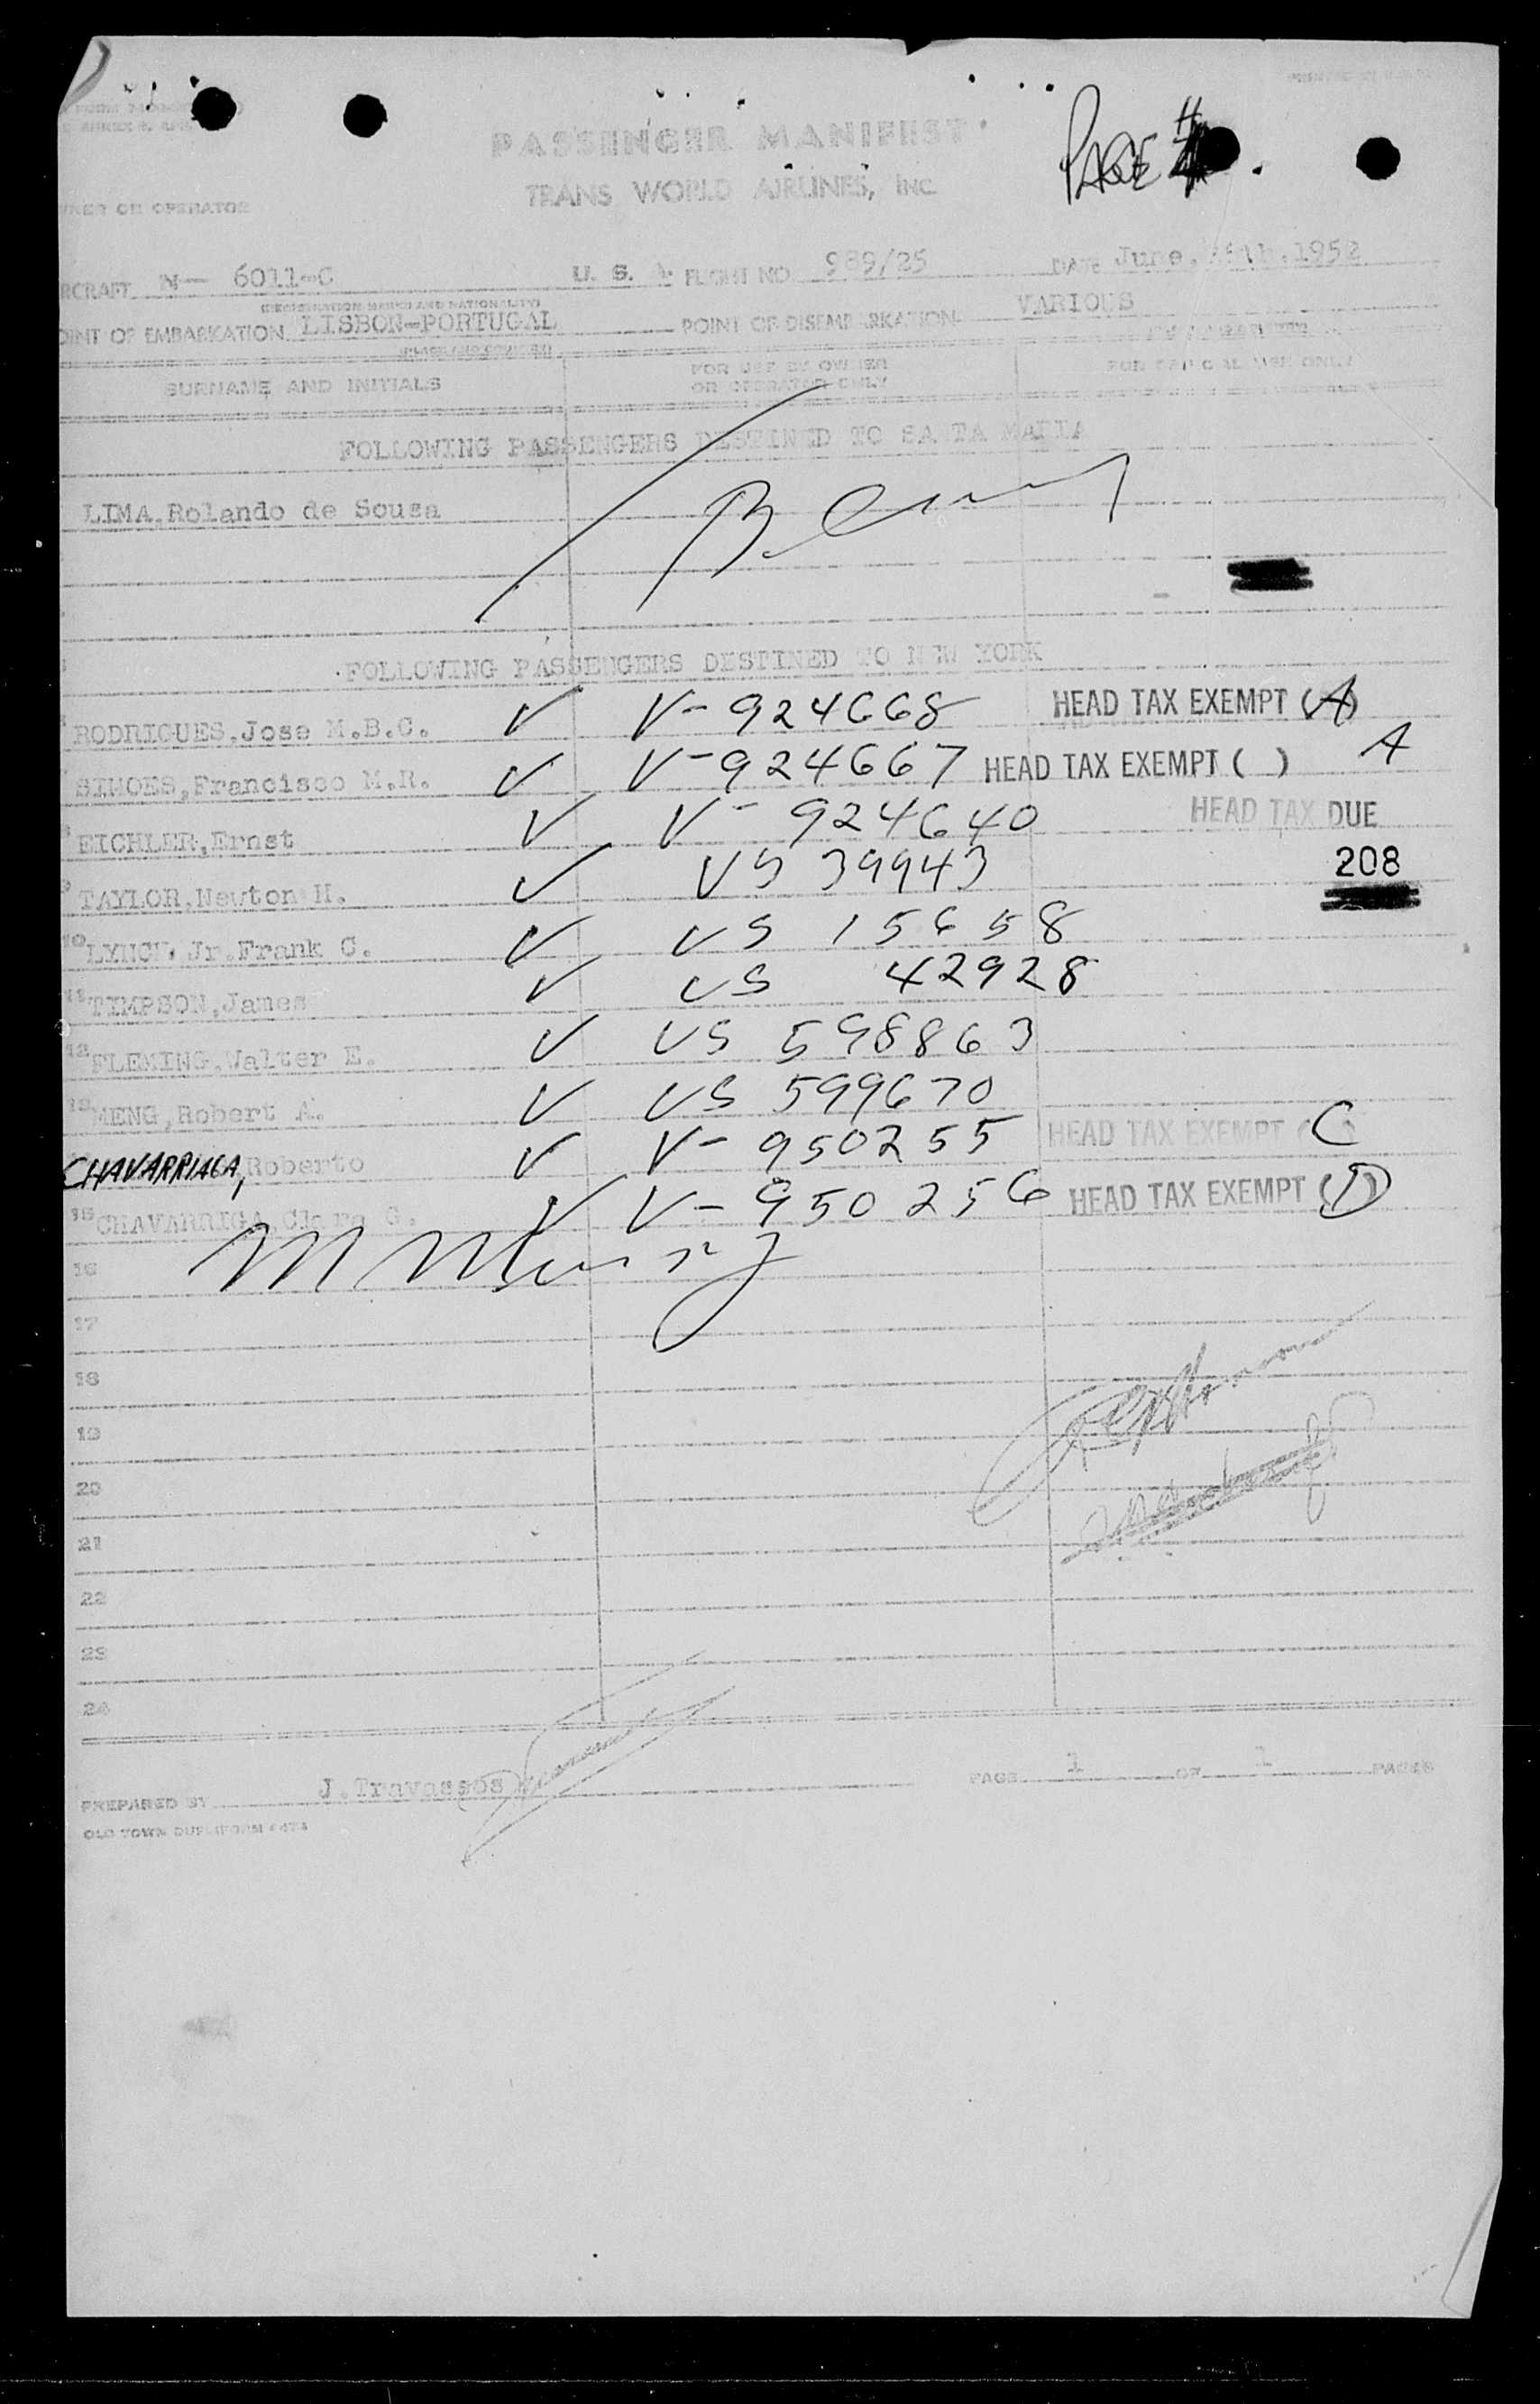 PASSENGER MANIFEST
PAGE #
TRANS WORLD AIRLINES, INC
OWNER OR OPERATOR
AIRCRAFT N- 6011-C U. S. A. FLIGHT NO. 989/25 DATE June, 1952
(REGISTRATION MARKS AND NATIONALITY)
POINT OF EMBARKATION LISBON-PORTUGAL POINT OF DISEMBARKATION VARIOUS
SURNAME AND INITIALS FOR USE BY OWNER OR OPERATOR ONLY FOR OFFICIAL USE ONLY
FOLLOWING PASSENGERS DESTINED TO SANTA MARIA
LIMA,Rolando de Sousa
FOLLOWING PASSENGERS DESTINED TO NEW YORK
RODRIGUES,Jose M.B.C. ✓ V-924668 HEAD TAX EXEMPT (A)
SIMOES,Francisco M.R. ✓ V-924667 HEAD TAX EXEMPT ( ) A
EICHLER,Ernst ✓ V-924640 HEAD TAX DUE
TAYLOR,Newton H. ✓ US 39943 208
10 LYNCH, Jr.Frank C. ✓ US 15658
11 TIMPSON,James ✓ US 42928
12 FLEMING,Walter E. ✓ US 598863
13 MENG,Robert A. ✓ US 599670
CHAVARRIAGA, Roberto ✓ V-950255 HEAD TAX EXEMPT ( ) C
15 CHAVARRIGA,Clara G. ✓ V-950256 HEAD TAX EXEMPT (D)
16
17
18
19
20
21
22
23
24
PREPARED BY J.Travassos PAGE 1 OF 1 PAGES
OLD TOWN DUPLIFORM